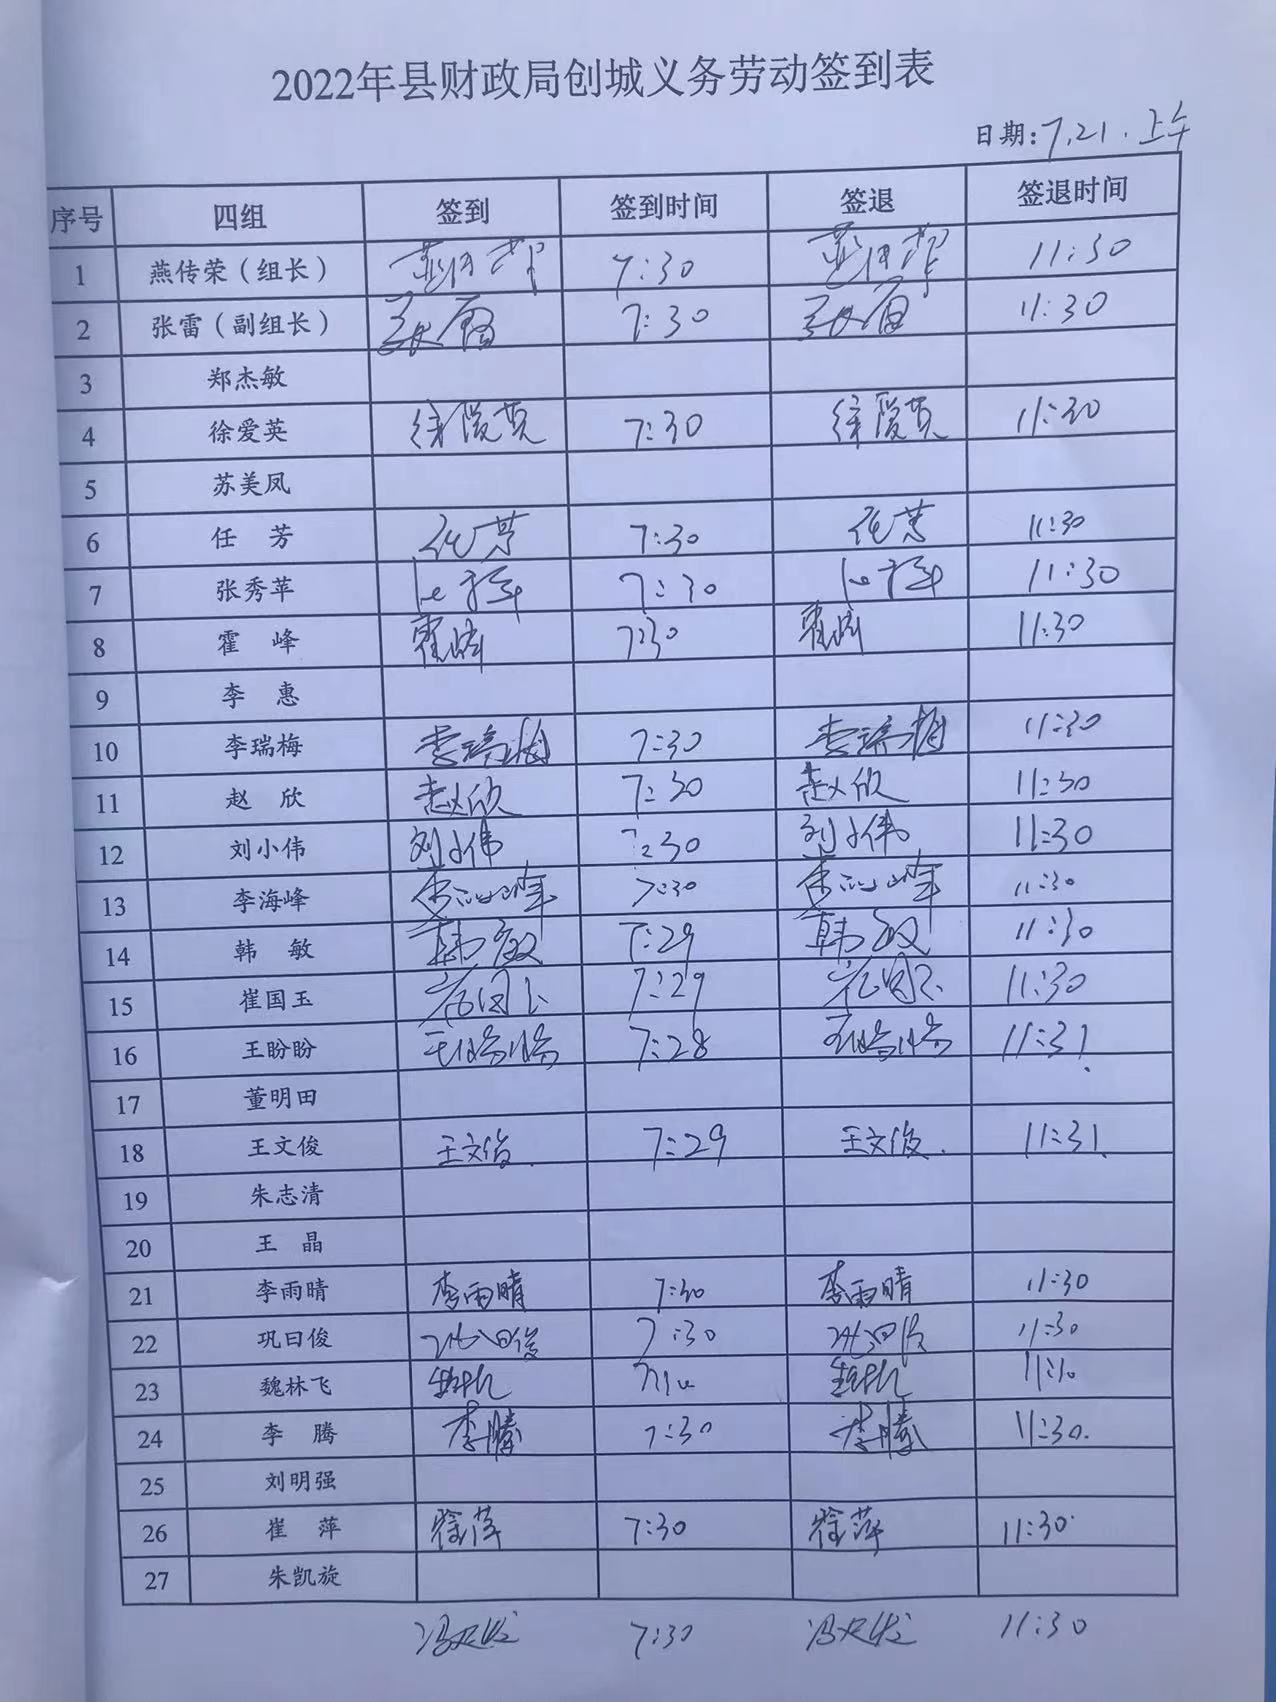 2022年县财政局创城义务劳动签到表
日期:7.21.上午
序号 四组 签到 签到时间 签退 签退时间
1 燕传荣（组长） 燕传荣 7:30 燕传荣 11:30
2 张雷（副组长） 张雷 7:30 张雷 11:30
3 郑杰敏
4 徐爱英 徐爱英 7:30 徐爱英 11:30
5 苏美凤
6 任 芳 任芳 7:30 任芳 11:30
7 张秀苹 7:30 11:30
8 霍 峰 霍峰 7:30 霍峰 11:30
9 李 惠
10 李瑞梅 李瑞梅 7:30 李瑞梅 11:30
11 赵 欣 赵欣 7:30 赵欣 11:30
12 刘小伟 刘小伟 7:30 刘小伟 11:30
13 李海峰 李海峰 7:30 李海峰 11:30
14 韩 敏 韩敏 7:29 韩敏 11:30
15 崔国玉 崔国玉 7:29 崔国玉 11:30
16 王盼盼 王盼盼 7:28 王盼盼 11:31
17 董明田
18 王文俊 王文俊. 7:29 王文俊. 11:31
19 朱志清
20 王 晶
21 李雨晴 李雨晴 7:30 李雨晴 11:30
22 巩曰俊 巩曰俊 7:30 巩曰俊 11:30
23 魏林飞
24 李 腾 李腾 7:30 李腾 11:30.
25 刘明强
26 崔 萍 7:30 11:30
27 朱凯旋
7:30 11:30